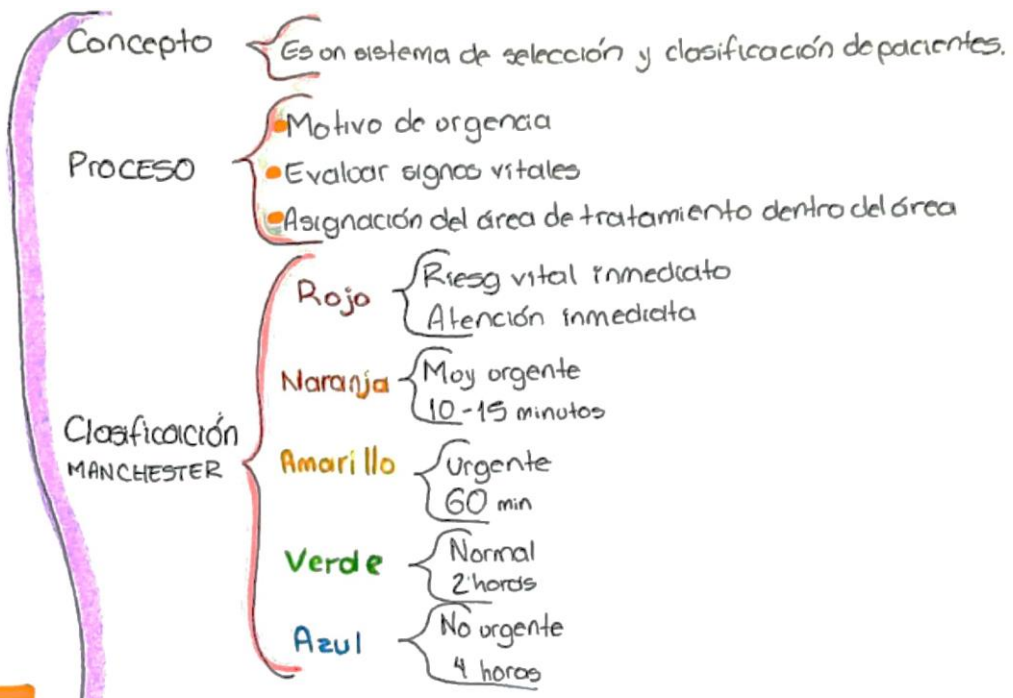 Concepto
Es un sistema de selección y clasificación de pacientes.
PROCESO
Motivo de urgencia
Evaluar signos vitales
Asignación del área de tratamiento dentro del área
Clasificación
MANCHESTER
Rojo
Riesg vital inmediato
Atención inmediata
Naranja
Muy urgente
10-15 minutos
Amarillo
Urgente
60 min
Verde
Normal
2 horas
Azul
No urgente
4 horas